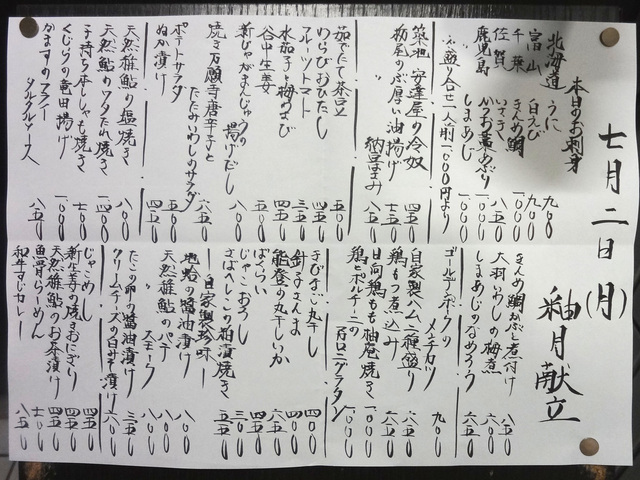 七月二日(月)
釉月献立
本日のお刺身
北海道 うに 九〇〇
富山 白えび 九〇〇
千葉 きんめ鯛 一、〇〇〇
佐賀 いさき 八五〇
鹿児島 かつを藁あぶり
しまあじ 一、〇〇〇
お盛り合せ一人前一、〇〇〇円より
築地 安達屋の冷奴 四五〇
栃尾のぶ厚い油揚げ 七五〇
〃 納豆はさみ 八五〇
茹でたて茶豆 五〇〇
わらびおひたし 四五〇
フルーツトマト 四五〇
水茄子と梅わさび
谷中生姜
新じゃがまんじゅうの揚げだし
焼き万願寺唐辛子と
たたみいわしのサラダ 六五〇
ポテトサラダ 五〇〇
ぬか漬け 四五〇
天然稚鮎の塩焼き 八〇〇
天然鮎のワタたれ焼き 一、四〇〇
子持ち本ししゃも焼き 七〇〇
くじらの竜田揚げ 一、〇〇〇
かますのフライ
タルタルソース 八五〇
きんめ鯛かぶと煮付け 八五〇
大羽いわしの梅煮 六〇〇
しまあじのなめろう 六五〇
ゴールデンポークの
メンチカツ 九〇〇
自家製ハム二種盛り 八五〇
鶏もつ煮込み 六五〇
日向鶏もも柚庵焼き 一、〇〇〇
鶏とポルチーニの
マカロニグラタン 一、〇〇〇
きびなご丸干し 四〇〇
針子さんま 四〇〇
能登の丸干しいか 六五〇
ばくらい 四五〇
じゃこおろし 三五〇
さばへしこの粕漬焼き 五五〇
自家製珍味
地蛤の醤油漬け 八〇〇
天然稚鮎のパテ 八〇〇
〃 スモーク 八〇〇
たこの卵の醤油漬け 三五〇
クリームチーズの白みそ漬け 六〇〇
じゃこめし 四五〇
新生姜の焼きおにぎり 四五〇
天然稚鮎のお茶漬け 四五〇
魚骨らーめん 七〇〇
和牛すじカレー 八五〇